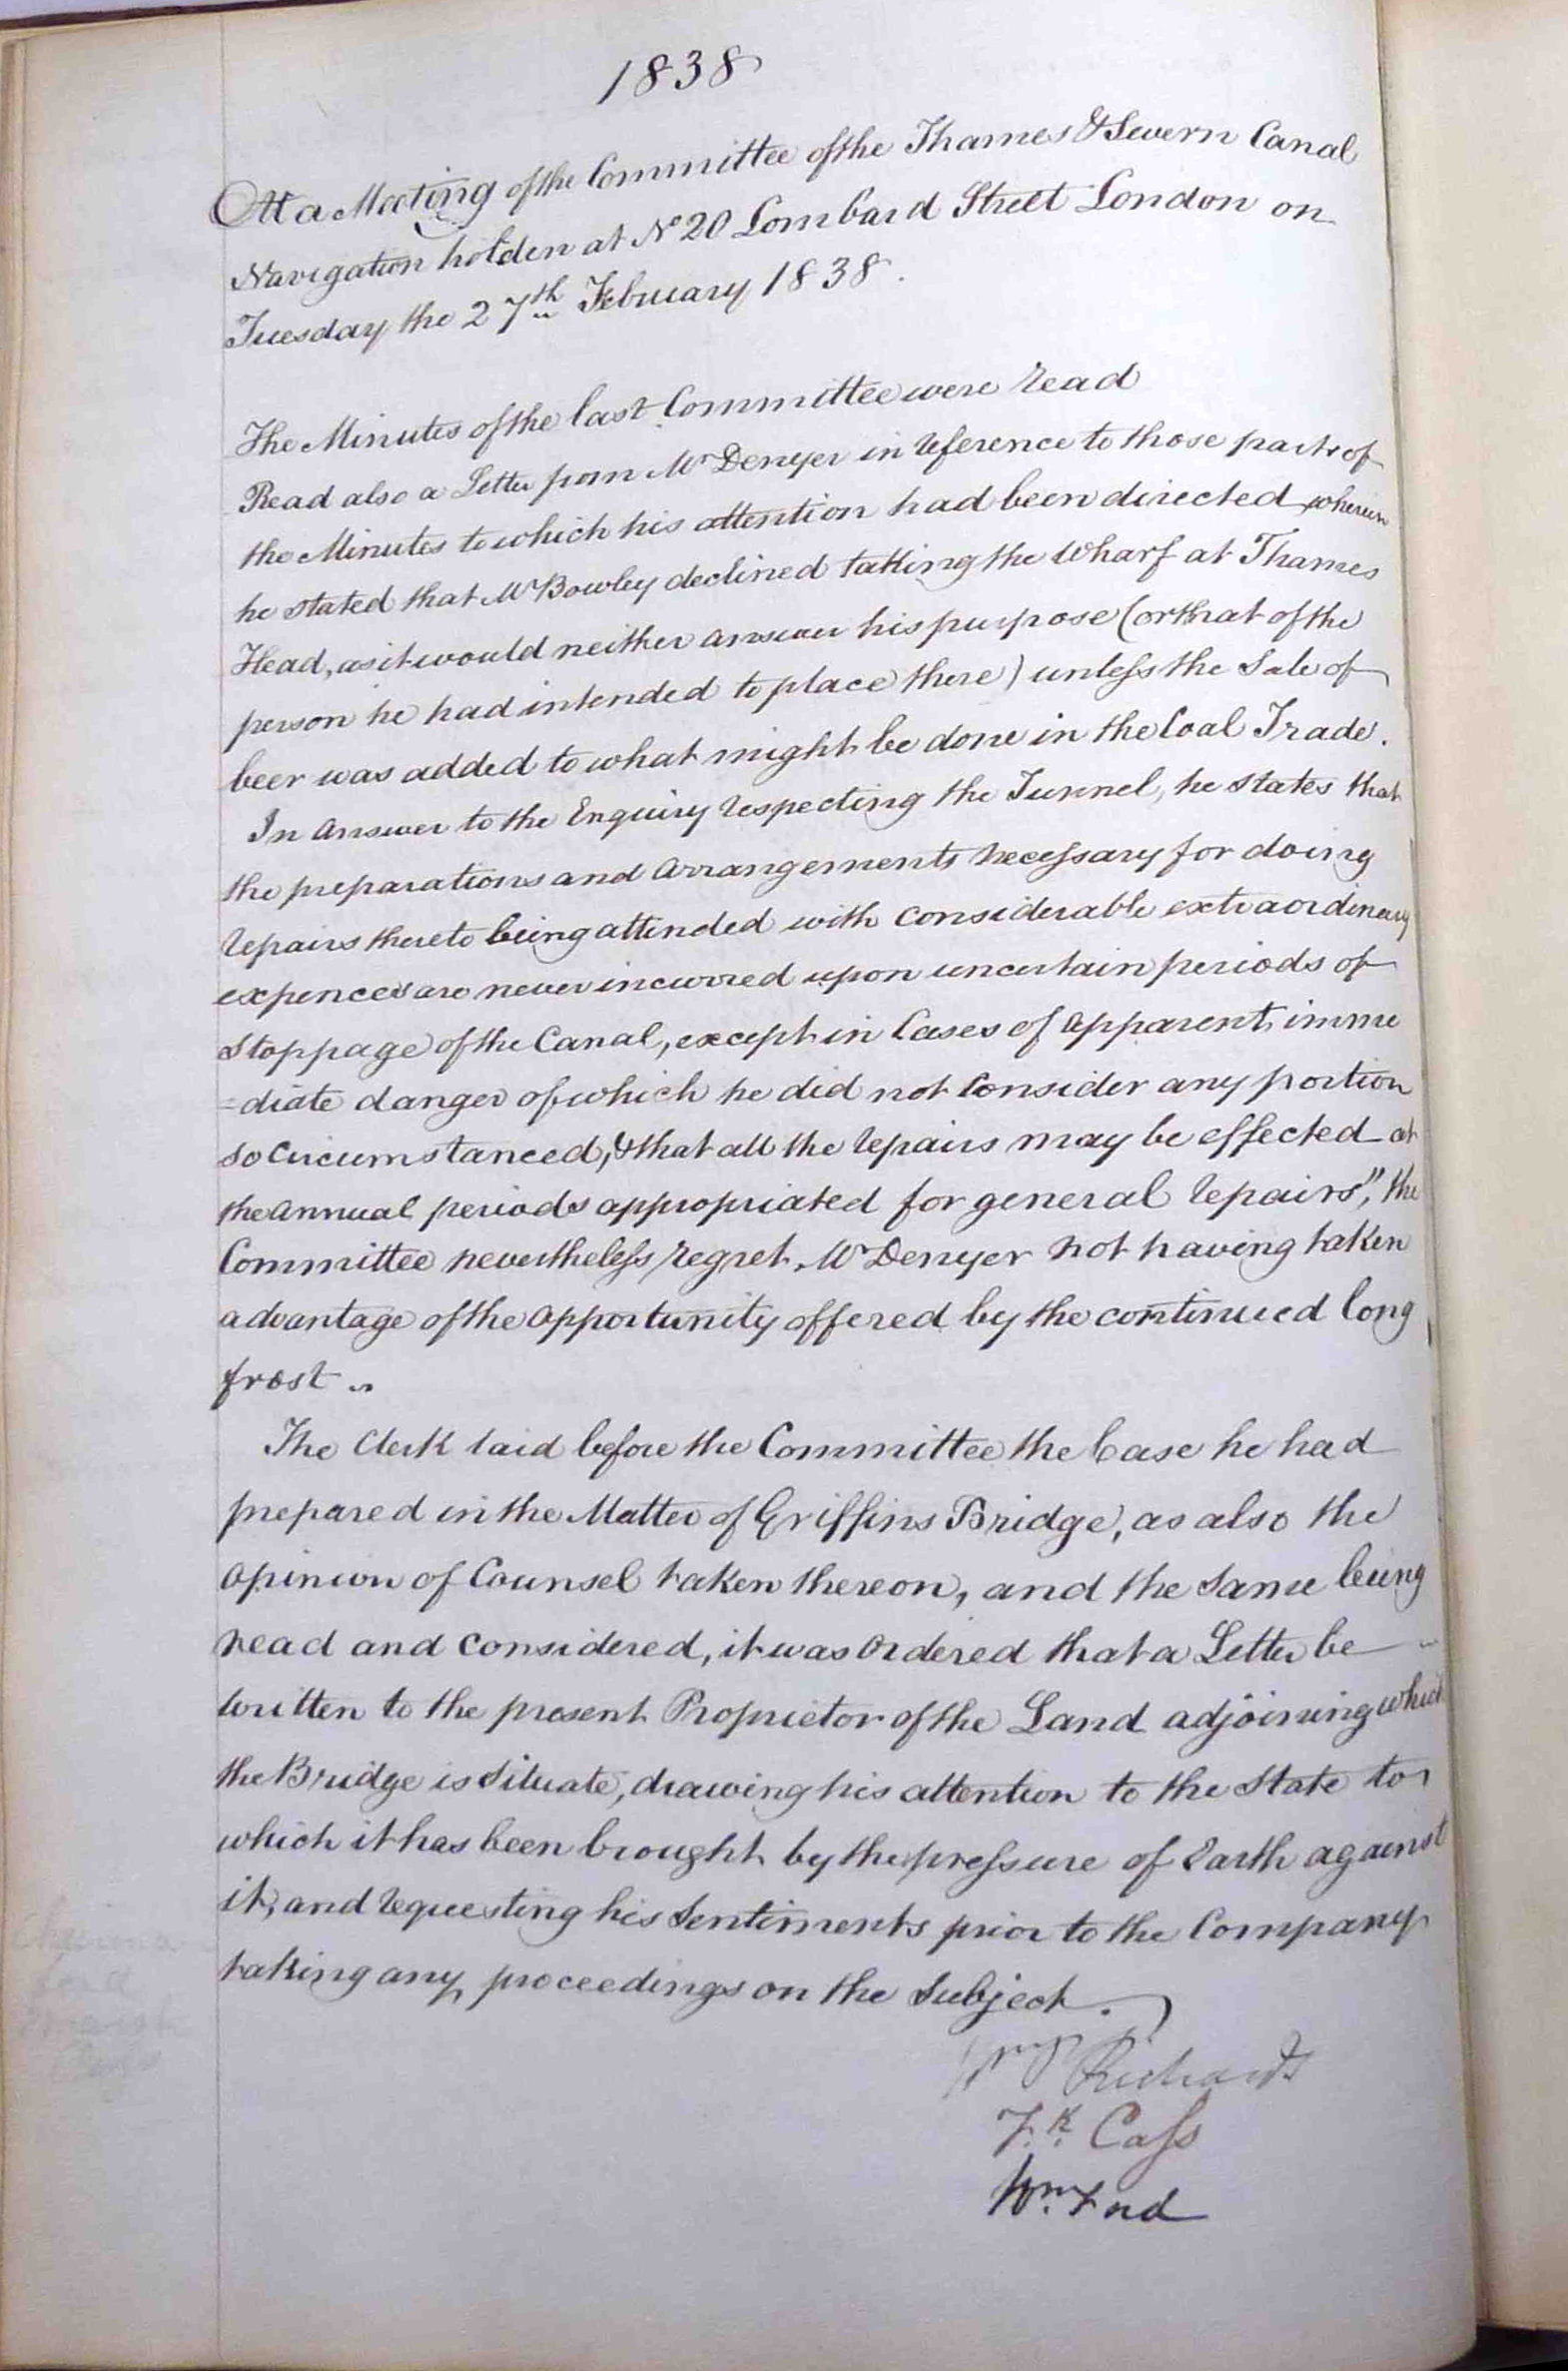 1838
At a Meeting of the Committee of the Thames & Severn Canal
Navigation holden at No 20 Lombard Street London on
Tuesday the 27th February 1838.
The Minutes of the last Committee were read
Read also a Letter from Mr Denyer in reference to those parts of
the Minutes to which his attention had been directed wherein
he stated that Mr Bowley declined taking the Wharf at Thames
Head, as it would neither answer his purpose (or that of the
person he had intended to place there) unless the Sale of
beer was added to what might be done in the Coal Trade.
In Answer to the Enquiry respecting the Tunnel, he states that
the preparations and Arrangements necessary for doing
repairs thereto being attended with considerable extraordinary
expences are never incurred upon uncertain periods of
Stoppage of the Canal, except in Cases of apparent imme
=diate danger of which he did not Consider any portion
so Circumstanced, & that all the repairs may be effected at
the Annual periods appropriated for general repairs", the
Committee nevertheless regret Mr Denyer not having taken
advantage of the opportunity offered by the continued long
frost
The Clerk laid before the Committee the Case he had
prepared in the Matter of Griffins Bridge, as also the
opinion of Counsel taken thereon, and the same being
read and considered, it was Ordered that a Letter be
written to the present Proprietor of the Land adjoining which
the Bridge is situate, drawing his attention to the State to
which it has been brought by the pressure of Earth against
it, and requesting his Sentiments prior to the Company
taking any proceedings on the Subject.
Richards
Fk. Cass
Wm. Ford